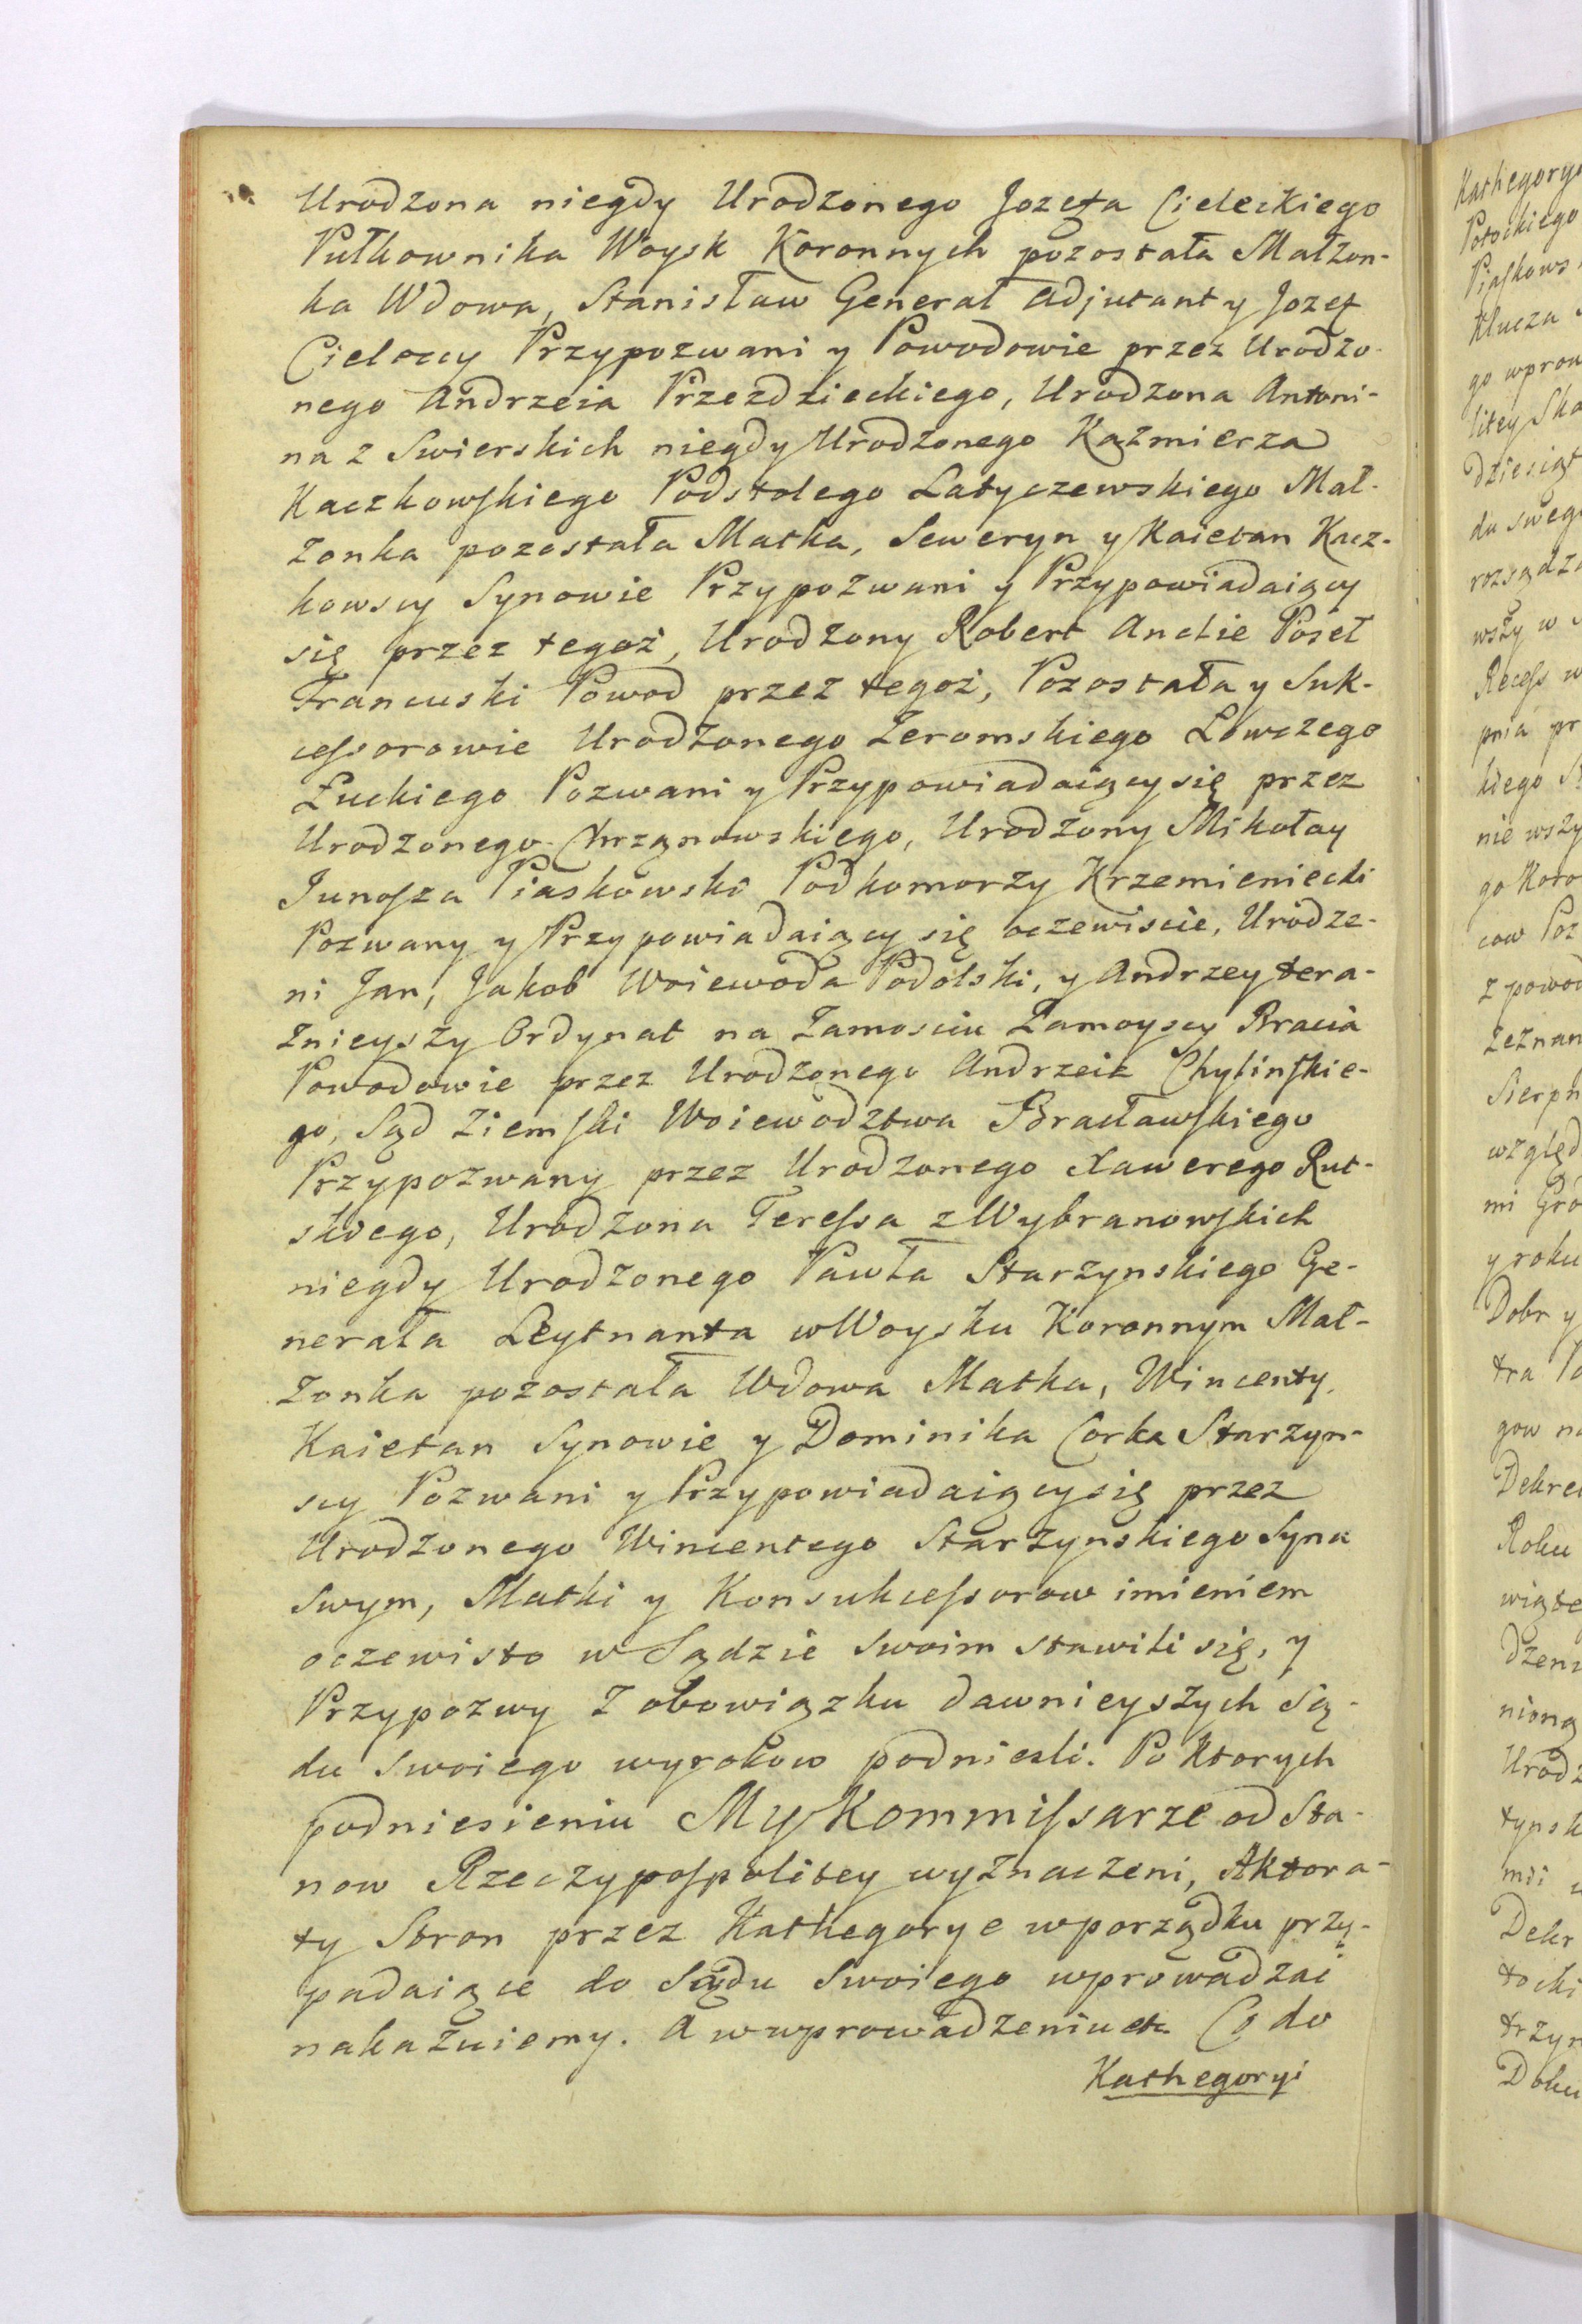 Urodzona niegdy Urodzonego Jozefa Cieleckiego
Pułkownika Woysk Koronnych pozostała Małżon-
ka Wdowa, Stanisław Generał Adjutant y Jozef
Cieleccy Przypozwani y Powodowie przez Urodzo-
nego Andrzeia Przezdzieckiego, Urodzona Antoni-
na z Swierskich niegdy Urodzonego Kaźmierza
Kaczkowskiego Podstolego Latyczewskiego Mał-
zonka pozostała Matka, Seweryn y Kaietan Kacz-
kowscy Synowie Przypozwani y Przypowiadaiący
się przez tegoż, Urodzony Robert Anclie Poseł
Francuski Powod przez tegoż, Pozostała y Suk-
cessorowie Urodzonego Zeromskiego Łowczego
Łuckiego Pozwani y Przypowiadaiący się przez
Urodzonego Chrząnowskiego, Urodzony Mikołay
Junosza Piaskowski Podkomorzy Krzemieniecki
Pozwany y Przypowiadaiący się oczewiscie, Urodze-
ni Jan, Jakob Woiewoda Podolski, y Andrzey tera-
znieyszy Ordynat na Zamosciu Zamoyscy Bracia
Powodowie przez Urodzonego Andrzeia Chylinskie-
go, Sąd Ziemski Woiewodztwa Bracławskiego
Przypozwany przez Urodzonego Xawerego Rut-
skiego, Urodzona Teressa z Wybranowskich
niegdy Urodzonego Pawła Starzynskiego Ge-
nerała Leytnanta w Woysku Koronnym Mał-
zonka pozostała Wdowa Matka, Wincenty,
Kaietan Synowie y Dominika Corka Starzyn-
scy Pozwani y Przypowiadaiący się przez
Urodzonego Wincentego Starzynskiego Syna
Swym, Matki y Konsukcessorow imieniem
oczewisto w Sądzie Swoim stawili się, y
Przypozwy z obowiązku dawnieyszych Są-
du Swoiego wyrokow podniesli. Po ktorych
podniesieniu My Kommissarze od Sta-
now Rzeczypospolitey wyznaczeni, Aktora-
ty Stron przez Kathegorye w porządku przy-
padaiące do Sądu Swoiego wprowadzać
nakazuiemy. A w wprowadzeniu etc. Co do
Kathegoryi
Kathegorye
Potockiego
Piaskows
Klucza
go wprow
litey Ska
dziesiąt
du swego
rozsądza
wszy w
Recess w
pnia pr
kiego S
nie wszy
go Koro
cow Poz
z powod
zeznan
Sierpn
względ
mi Gro
y roku
Dobr y
tra Po
gow na
Dekre
Roku
wiąte
dzeni
nioną
Urodz
tynsk
mii
Dekr
tocki
trzyn
Doku